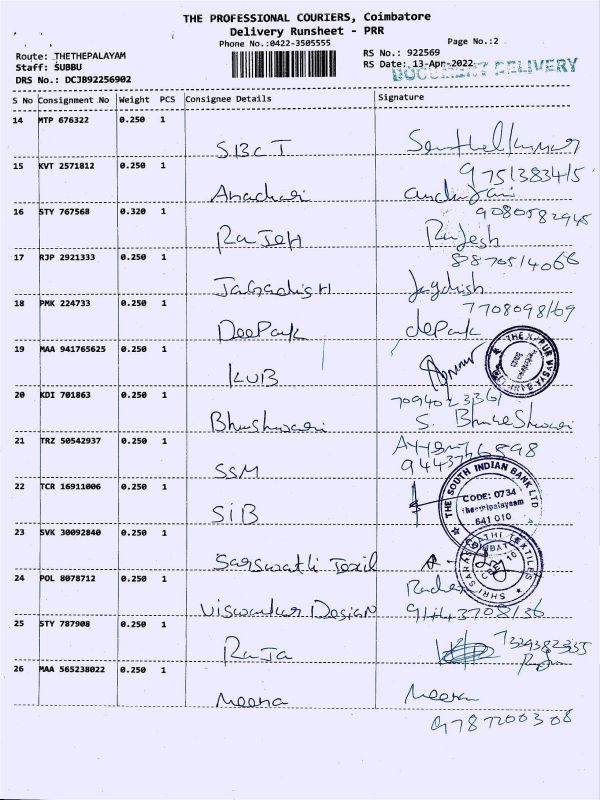 THE PROFESSIONAL COURIERS, Coimbatore
Delivery Runsheet - PRR
Phone No.:0422-3505555
Page No.:2
Route: THETHEPALAYAM
RS No.: 922569
Staff: SUBBU
RS Date: 13-Apr-2022
DOCUMENT DELIVERY
DRS No.: DCJB92256902
S No Consignment No Weight PCS Consignee Details Signature
14 MTP 676322 0.250 1
SBCT Senthelkumar
15 KVT 2571812 0.250 1 9751383415
Anachari
16 STY 767568 0.320 1 9080582945
RaJeH Rajesh
17 RJP 2921333 0.250 1 8870514066
JaGadish Jagdish
18 PMK 224733 0.250 1 7708098169
DeePak dePak
19 MAA 941765625 0.250 1
KUB
20 KDI 701863 0.250 1
Bhushwari S. Bhuvaneshwari
21 TRZ 50542937 0.250 1
SSM
22 TCR 16911006 0.250 1
SiB
THE SOUTH INDIAN BANK LTD
CODE: 0734
641 010
23 SVK 30092840 0.250 1
Sarswathi Texil
24 POL 8078712 0.250 1
Viswankar Design 91443708136
25 STY 787908 0.250 1 7339382355
RaJa
26 MAA 565238022 0.250 1
Meena Meena
9787200308